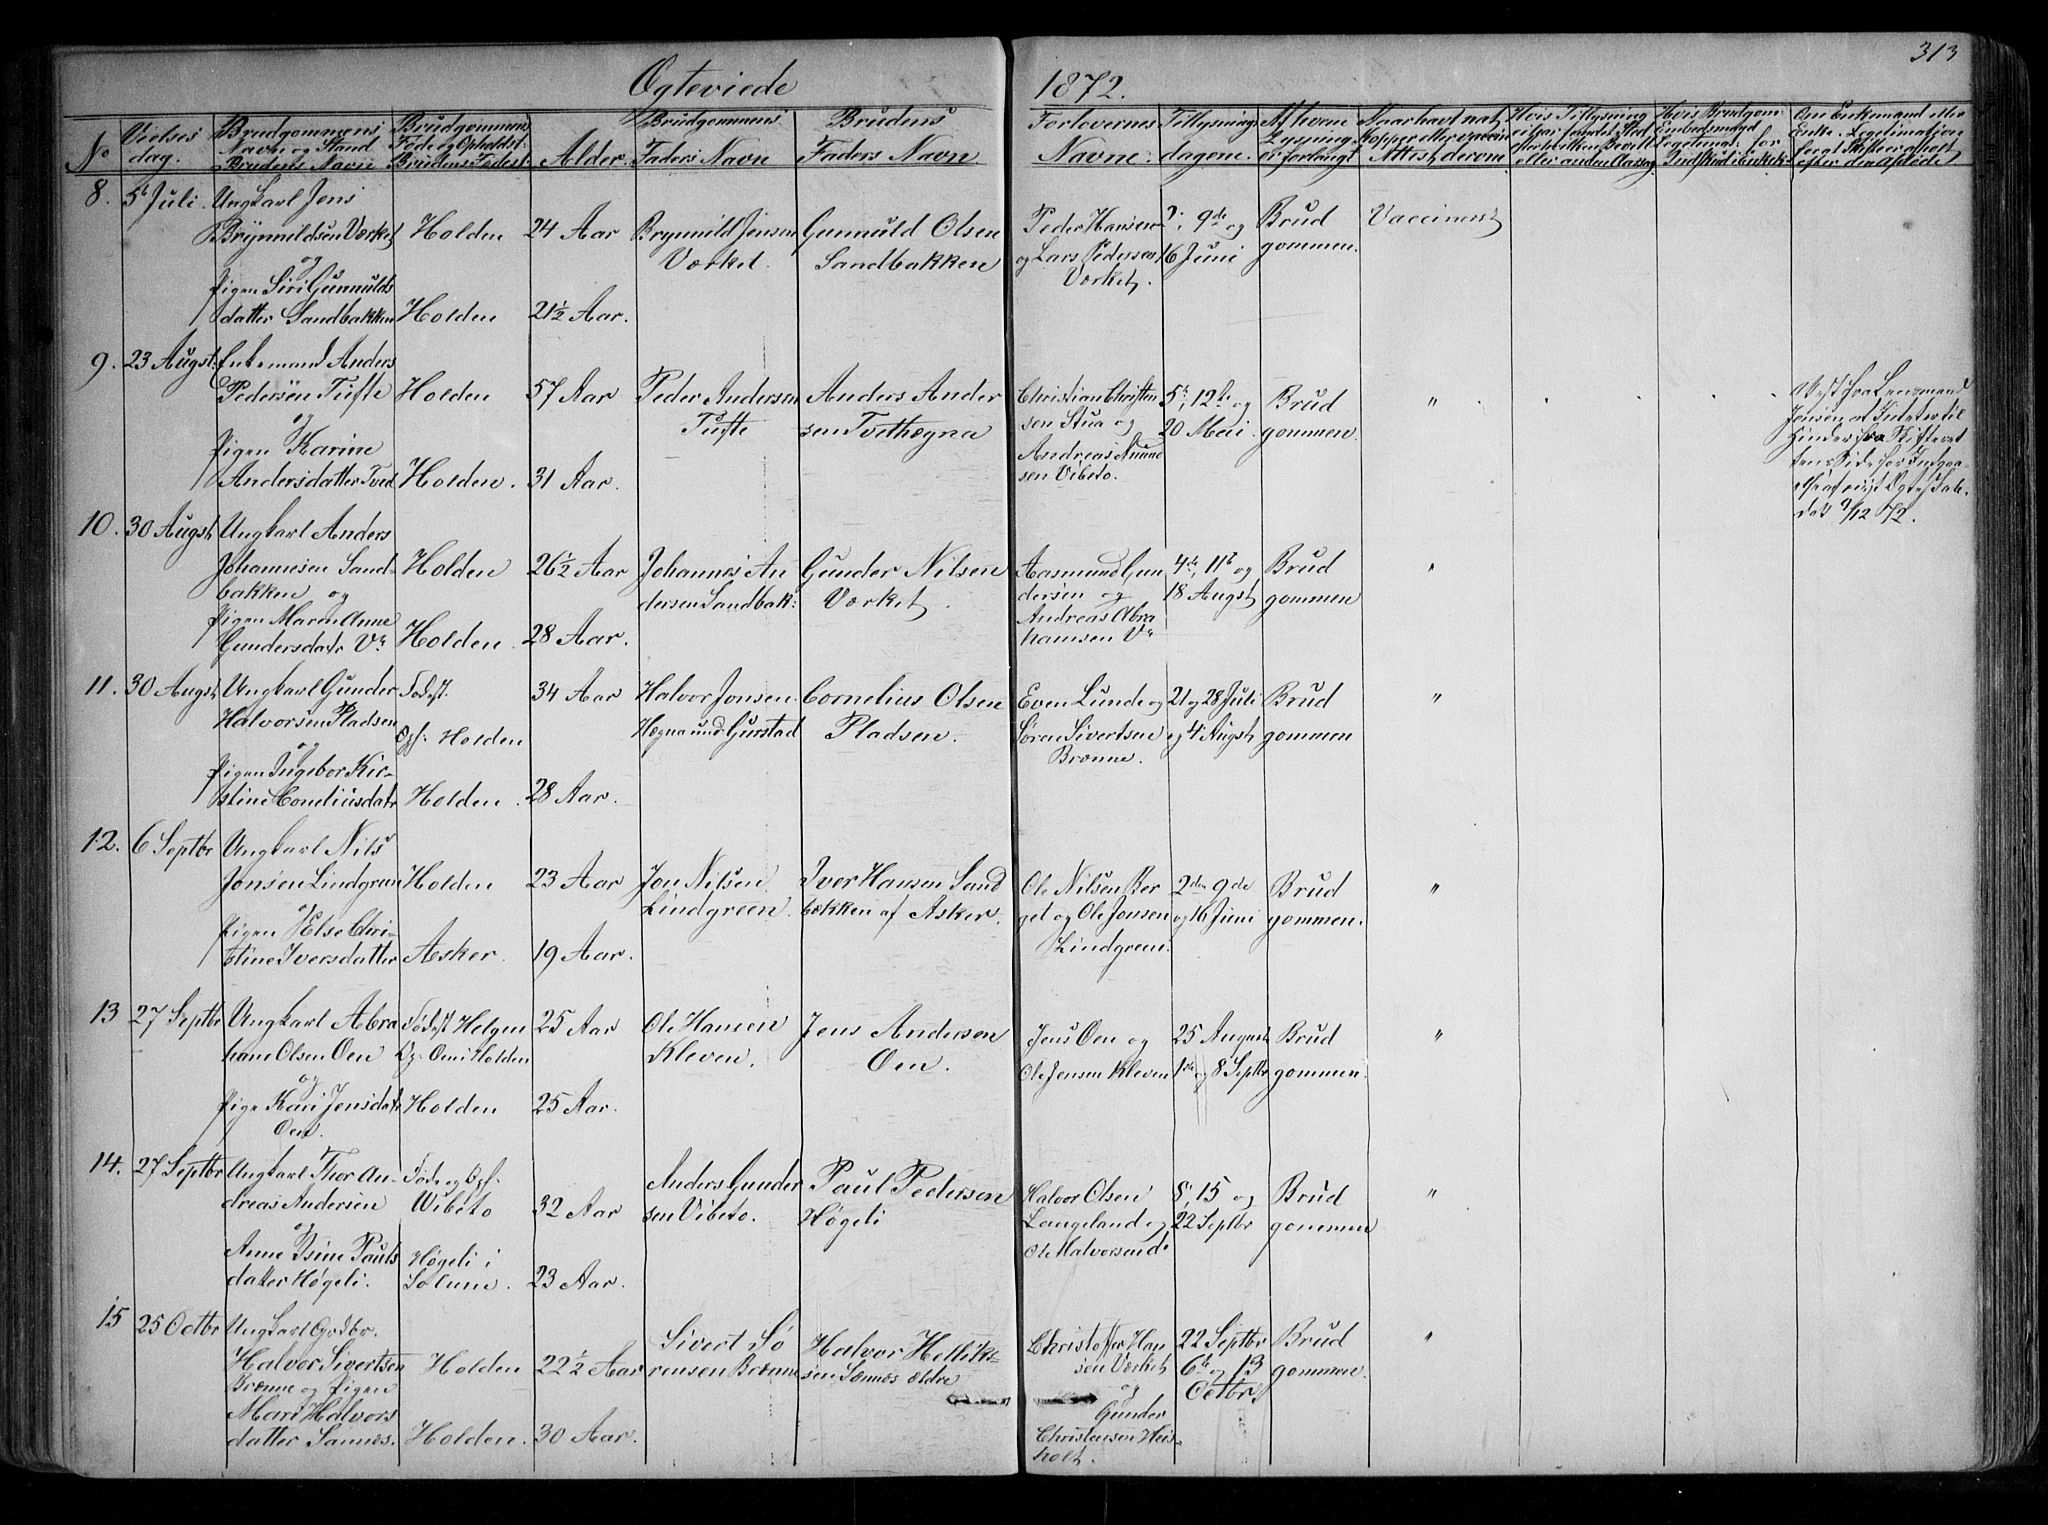 313
Ogteviede 1872.
No
Vielses
dag.
Brudgommens
Navn og Stand
Brudens Navn
Brudgommens
Føde og Opholdst.
Brudens Fødest.
Alder.
Brudgommens
Faders Navn
Brudens
Faders Navn
Forlovernes
Navne:
Tillysnings
dagene.
Af hvem
Lysning
er forlangt
Naar havt nat.
Kopper eller vaccin
Attist derom
Hvis Tillysning
ei har fundet Sted
eller anden Aarsag
Hvis Brudgom
Embedsmand
Om Enkemand eller
Enke. Legitimation
8. 5t Juli. Ungkarl Jens
Brynnildsen Værket Holden 24 Aar Brynnild Jensen
Værket. Gunnuld Olsen
Sandbakken Peder Hansen
og Lars Pedersen
Værket. 2, 9de og
16 Juni Brud
gommen. Vaccineret
og
pigen Siri Gunnulds
datter Sandbakken Holden 21½ Aar.
9. 23 Augst: Enkemand Anders
Pedersøn Tufte Holden 57 Aar Peder Andersen
Tufte Anders Ander
sen Tvethægna Christian Christen
sen Stua og
Andreas Amund
sen Vibeto. 5t, 12te og
20 Mai. Brud
gommen. "
og
pigen Karine
Andersdatter Tved Holden. 31 Aar.
Attest fra Lensmand
Jensen at Intet er til
Hinder fra Skifteret
tens Side for Indgaa
else af nyt Ogteskab.
dat 9/12 72.
10. 30 Augst Ungkarl Anders
Johannesen Sand-
bakken og Holden 26½ Aar Johannes An
dersen Sandbak: Gunder Nilsen
Værket. Aasmund Gun
dersen og
Andreas Abra
hamsen V. 4de, 11t og
18 Augst Brud
gommen "
pigen Maren Anne
Gundersdatr V. Holden. 28 Aar.
11. 30 Augst Ungkarl Gunder
Halvorsen Pladsen Fødest.
Oph. Holden 34 Aar Halvor Jonsen
Hægna und Gurstad Cornelius Olsen
Pladsen. Even Lunde og
Søren Sivertsen
Brænne. 21 og 28 Juli
og 4 Augst Brud
gommen "
og
pigen Ingebor Kir-
stine Corneliusdatr Holden. 28 Aar.
12. 6 Septbr Ungkarl Nils
Jonsen Lindgreen Holden 23 Aar Jon Nilsen
Lindgreen. Iver Hansen Sand
bækken af Asker. Ole Nilsen Ber
get og Ole Jonsen
Lindgreen. 2den 9de
og 16 Juni Brud
gommen. "
og
pigen Else Chri-
stine Iversdatter Asker. 19 Aar.
13 27 Septbr Ungkarl Abra
ham Olsen Oen Fødest Helgen
Op. Oen i Holden 25 Aar Ole Hansen
Kleven. Jens Andersen
Oen. Jens Oen og
Ole Jensen Kleven 25 August
1ste og 8 Septbr Brud
gommen. "
og
pige Kari Jensdatr
Oen. Holden 25 Aar.
14. 27 Septbr Ungkarl Thor An-
dreas Andersen Føde og Oph.
Wibeto 32 Aar Anders Gunder
sen Vibeto. Paul Pedersen
Høgeli Halvor Olsen
Langeland og
Ole Halvorsen do 8, 15 og
22 Septbr Brud
gommen "
og
Anne Isine Pauls
datter Høgeli. Høgeli i
Solum. 23 Aar.
15 25 Octbr Ungkarl Grdbr.
Halvor Sivertsen
Brænne og pigen Holden 22½ Aar Sivert Sö
rensen Brænne Halvor Helliks
sen Sannes ældre Christoffer Han
sen Værket
og
Gunder
Christensen Heis-
holt. 22 Septbr
6te og 13
Octbr Brud
gommen. "
Mari Halvors
datter Sannes. Holden. 30 Aar.